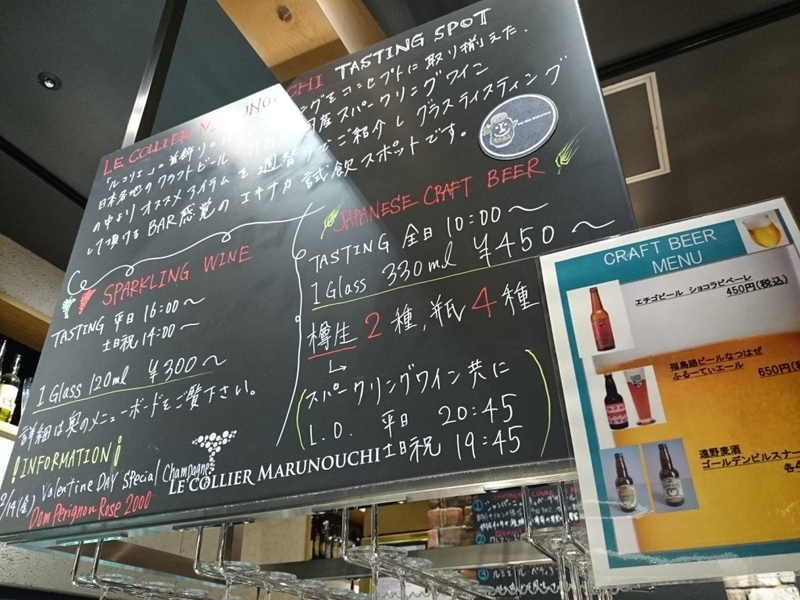 LE COLLIER MARUNOUCHI TASTING SPOT
「ルコリエ」の首飾りの
をコンセプトに取り揃えた、
日本各地のクラフトビール
国産スパークリングワイン
の中よりオススメアイテムを週替りでご紹介しグラスティスティング
して頂けるBAR感覚のエキナカ試飲スポットです。
SPARKLING WINE
TASTING 平日 16:00～
土日祝 14:00～
1 Glass 120ml ¥300～
詳細は奥のメニューボードをご覧下さい。
!INFORMATION!
2/14(金) Valentine DAY special Champagne
Dom Perignon Rose 2000
JAPANESE CRAFT BEER
TASTING 全日 10:00～
1 Glass 330ml ¥450～
樽生2種、瓶4種
スパークリングワイン共に
L.O. 平日 20:45
土日祝 19:45
LE COLLIER MARUNOUCHI
CRAFT BEER
MENU
エチゴビール ショコラビベーレ
450円(税込)
福島路ビールなつはぜ
ふるーてぃエール 650円(税
遠野麦酒
ゴールデンピルスナー
各